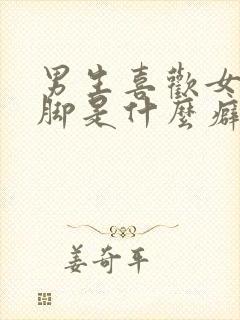 男生喜歡女
腳是什麼癖
姜奇平